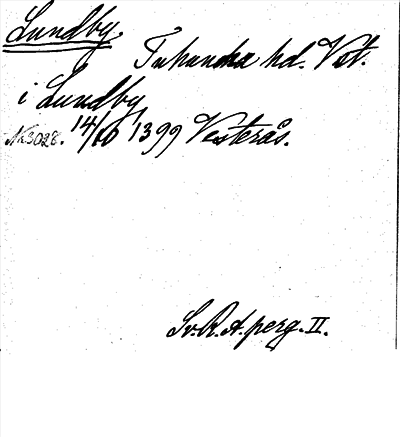 Lundby
Tuhundra hd. Vst.
i Lundby
Nr 3028. 14/10 1399 Vesterås.
Sv. R. A. perg. II.